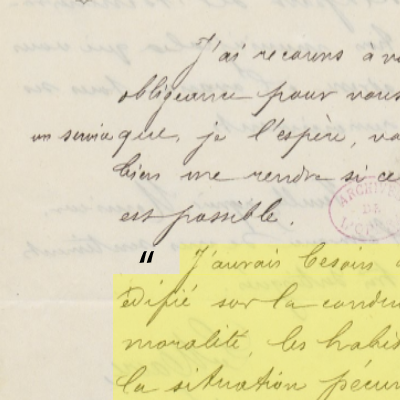 J'ai recours à vo
obligeance pour vous
un service que, je l'espère, vo
bien me rendre si ce
est possible.
ARCHIVES
DE
“ J'aurais besoin
édifié sur la condu
moralité, les habit
la situation pécun